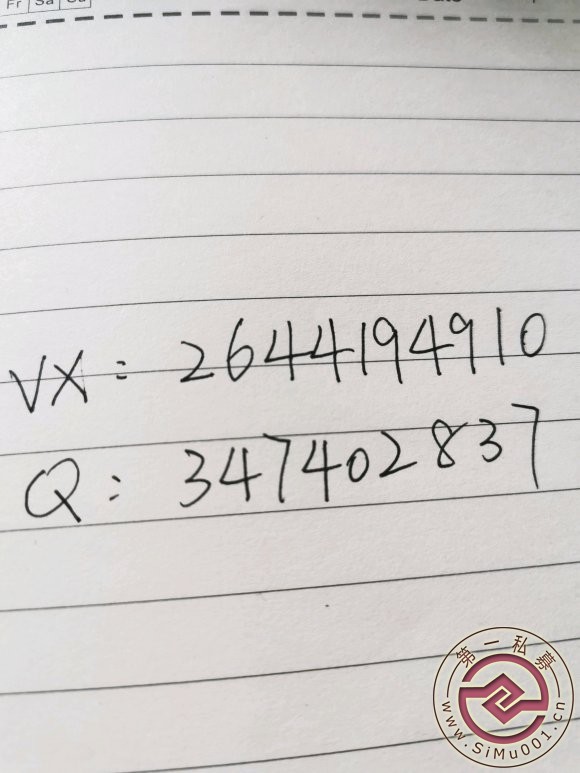 Fr Sa Su
VX: 2644194910
Q: 347402837
第一私募
www.SiMu001.cn